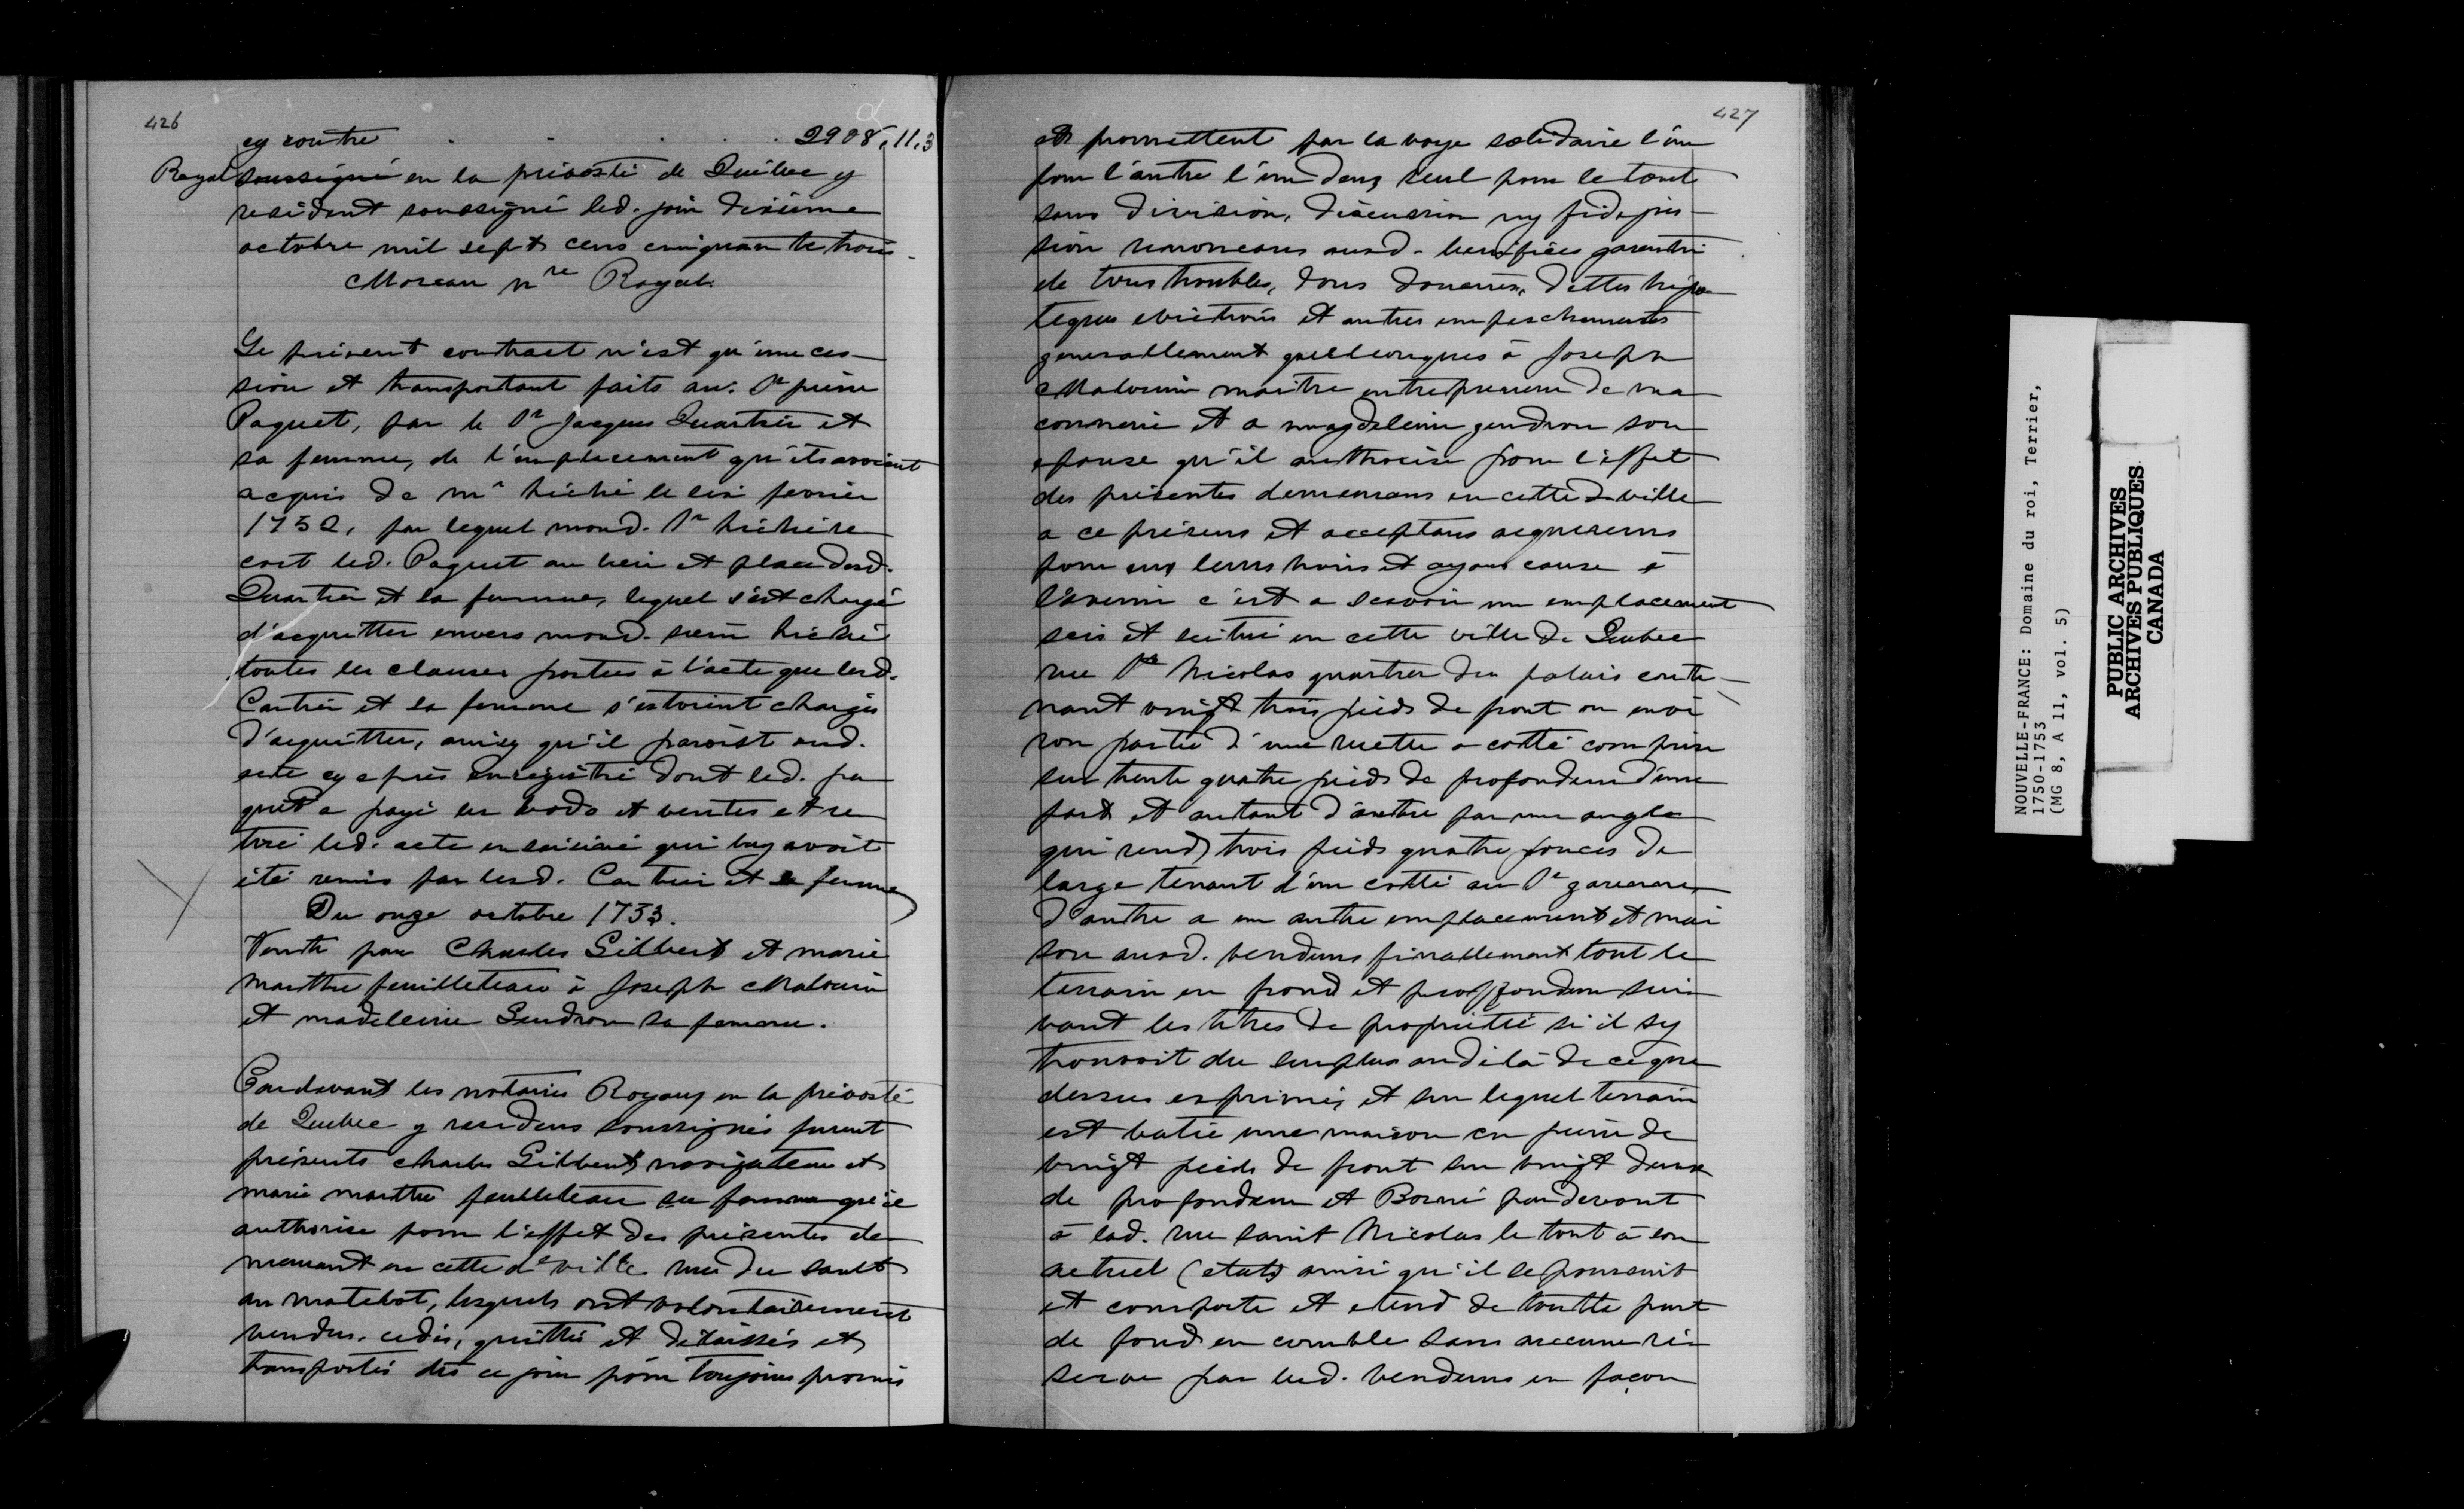 426
cy contre . . . . 2908,11,3
Royal soussigné en la prévosté de Québec y
residant soussigné led. jour dixieme
octobre mil sept cens cinquante trois.
Moreau nre Royal.
Le présent contract n'est qu'une ces-
sion et transportant faits au. Sr pierre
Paquet, par le Sr Jacques Quartier et
sa femme, de l'emplacement qu'ils avoient
acquis de mr hiché le six fevrier
1752, par lequel mond. Sr hiché re
coit led. Paquet au lieu et place desd.
Quartier et sa femme, lequel s'est chargé
d'acquitter envers mond. sieur hiché
toutes les clauses portées à l'acte que lesd.
Cartier et sa femme s'estoient chargés
d'acquitter, ainsy qu'il paroist aud.
acte cy après enregistré dont led. pa
quet a payé les lods et ventes et re
tiré led. acte ensaisiné qui luy avoit
été remis par lesd. Cartier et sa femme
Du onze octobre 1753.
Vente par Charles Gilbert et marie
marthe feuilleteau à Joseph Malouin
et madeleine Gendron sa femme.
Pardevant les notaires Royaux en la prévosté
de Quebec y residens soussignés furent
présents charles Gilbert navigateur et
marie marthe feuilleteau sa femme qu'il
authorise pour l'effet des présentes de
meurant en cette de ville rue du sault
au matelot, lesquels ont volontairement
vendus, cedés, quittés et délaissés et
transportés dès ce jour pour toujours promis
427
et promettent par la voye solidaire l'un
pour l'autre l'un deux seul pour le tout
sans division, discussion ny fidejus-
sion renonceans ausd. benefices garentir
de tous troubles, dons douaires, dettes hipo
teques evictions et autres empeschements
generallement quelleconques à Joseph
Malouin maitre entrepreneur de ma
connerie et a magdeleine gendron son
epouse qu'il authorise pour l'effet
des présentes demeurans en cette d. ville
a ce présens et acceptans acquereurs
pour eux leurs hoirs et ayans cause à
l'avenir c'est a scavoir un emplacement
scis et scitué en cette ville de Quebec
rue St Nicolas quartier du palais conte-
nant vingt trois pieds de front ou envi
ron partie d'une ruette a cotté comprise
sur trente quatre pieds de profondeur d'une
part et autant d'autre par un angle
qui rend trois pieds quatre pouces de
large tenant d'un cotté au Sr
d'autre a un autre emplacement et mai
son ausd. vendeurs finallement tout le
terrain en frond et proffondeur sui
vant les titres de proprietté si il sy
trouvoit du surplus au delà de ce que
dessus exprimé, et sur lequel terrain
est batie une maison en pierre de
vingt pieds de front sur vingt deux
de profondeur et Borné par devant
à lad. rue saint Nicolas le tout à son
actuel (etat) ainsi qu'il se poursuit
et comporte et etend de toutte part
de fond en comble sans aucune ré
serve par lesd. vendeurs en façon
NOUVELLE-FRANCE: Domaine du roi, Terrier,
1750-1753
(MG 8, A 11, vol. 5)
PUBLIC ARCHIVES
ARCHIVES PUBLIQUES
CANADA